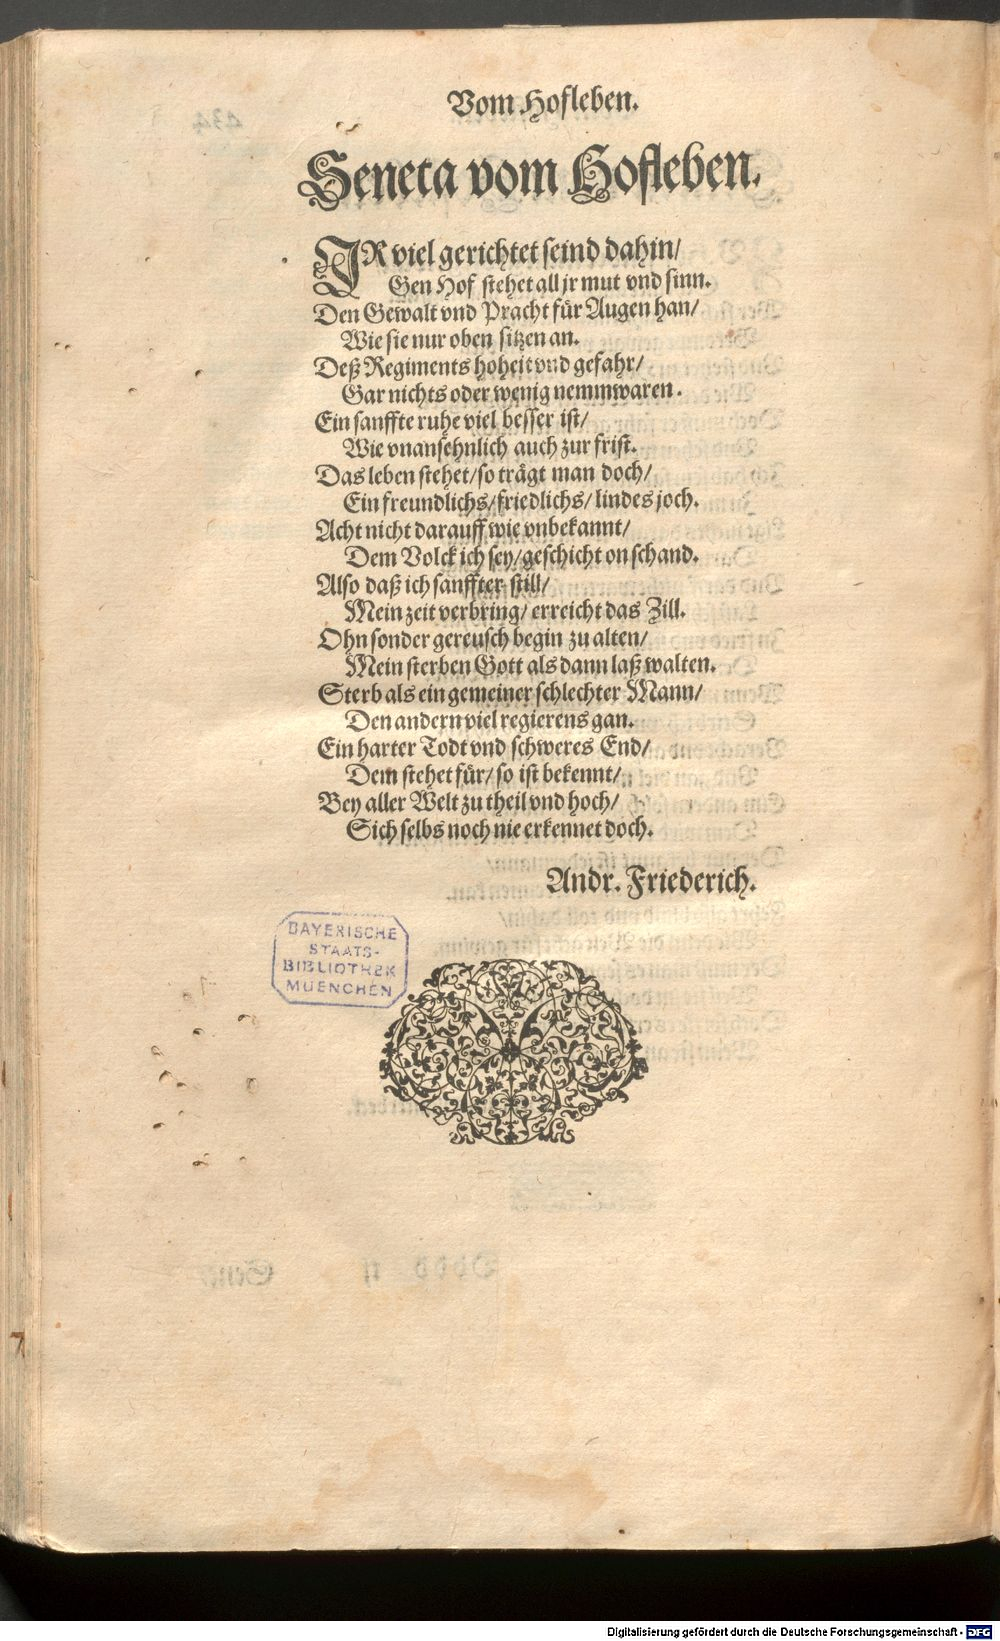 Vom Hofleben.
Seneca vom Hofleben.
IR viel gerichtet seind dahin/
Gen Hof stehet all jr mut vnd sinn.
Den Gewalt vnd Pracht für Augen han/
Wie sie nur oben sitzen an.
Deß Regiments hoheit vnd gefahr/
Gar nichts oder wenig nemmwaren.
Ein sanffte ruhe viel besser ist/
Wie vnansehnlich auch zur frist.
Das leben stehet/so trägt man doch/
Ein freundlichs/friedlichs/ lindes joch.
Acht nicht darauff wie vnbekannt/
Dem Volck ich sey/geschicht on schand.
Also daß ich sanffter still/
Mein zeit verbring/ erreicht das Zill.
Ohn sonder gereusch begin zu alten/
Mein sterben Gott als dann laß walten.
Sterb als ein gemeiner schlechter Mann/
Den andern viel regierens gan.
Ein harter Todt vnd schweres End/
Dem stehet für/ so ist bekennt/
Bey aller Welt zu theil vnd hoch/
Sich selbs noch nie erkennet doch.
Andr. Friederich.
BAYERISCHE
STAATS-
BIBLIOTHEK
MUENCHEN
Digitalisierung gefördert durch die Deutsche Forschungsgemeinschaft - DFG